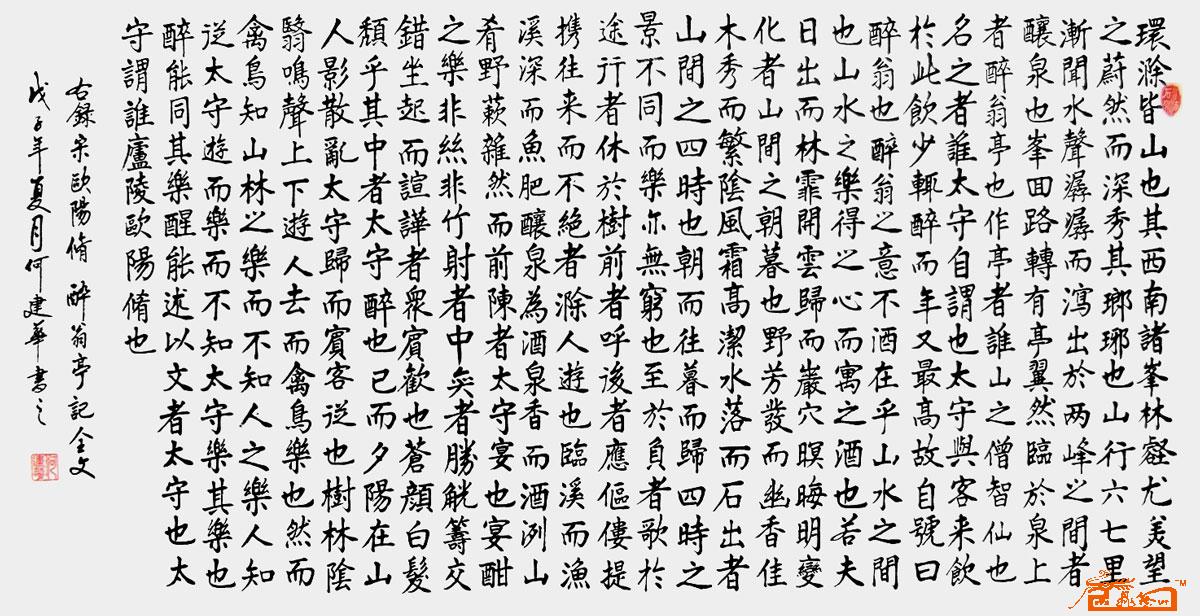 環滁皆山也其西南諸峯林壑尤美望
之蔚然而深秀其瑯琊也山行六七里
漸聞水聲潺潺而瀉出於两峰之間者
釀泉也峯回路轉有亭翼然臨於泉上
者醉翁亭也作亭者誰山之僧智仙也
名之者誰太守自謂也太守與客来飲
於此飲少輒醉而年又最高故自號曰
醉翁也醉翁之意不酒在乎山水之間
也山水之樂得之心而寓之酒也若夫
日出而林霏開雲歸而巖穴暝晦明變
化者山間之朝暮也野芳發而幽香佳
木秀而繁陰風霜高潔水落而石出者
山間之四時也朝而往暮而歸四時之
景不同而樂亦無窮也至於負者歌於
途行者休於樹前者呼後者應傴僂提
携往来而不絶者滁人遊也臨溪而漁
溪深而魚肥釀泉為酒泉香而酒洌山
肴野蔌雜然而前陳者太守宴也宴酣
之樂非絲非竹射者中奕者勝觥籌交
錯坐起而諠譁者衆賓歡也蒼顔白髮
頹乎其中者太守醉也已而夕陽在山
人影散亂太守歸而賓客從也樹林陰
翳鳴聲上下遊人去而禽鳥樂也然而
禽鳥知山林之樂而不知人之樂人知
從太守遊而樂而不知太守樂其樂也
醉能同其樂醒能述以文者太守也太
守謂誰廬陵歐陽脩也
右録宋歐陽脩 醉翁亭記全文
戊子年夏月何建華書之